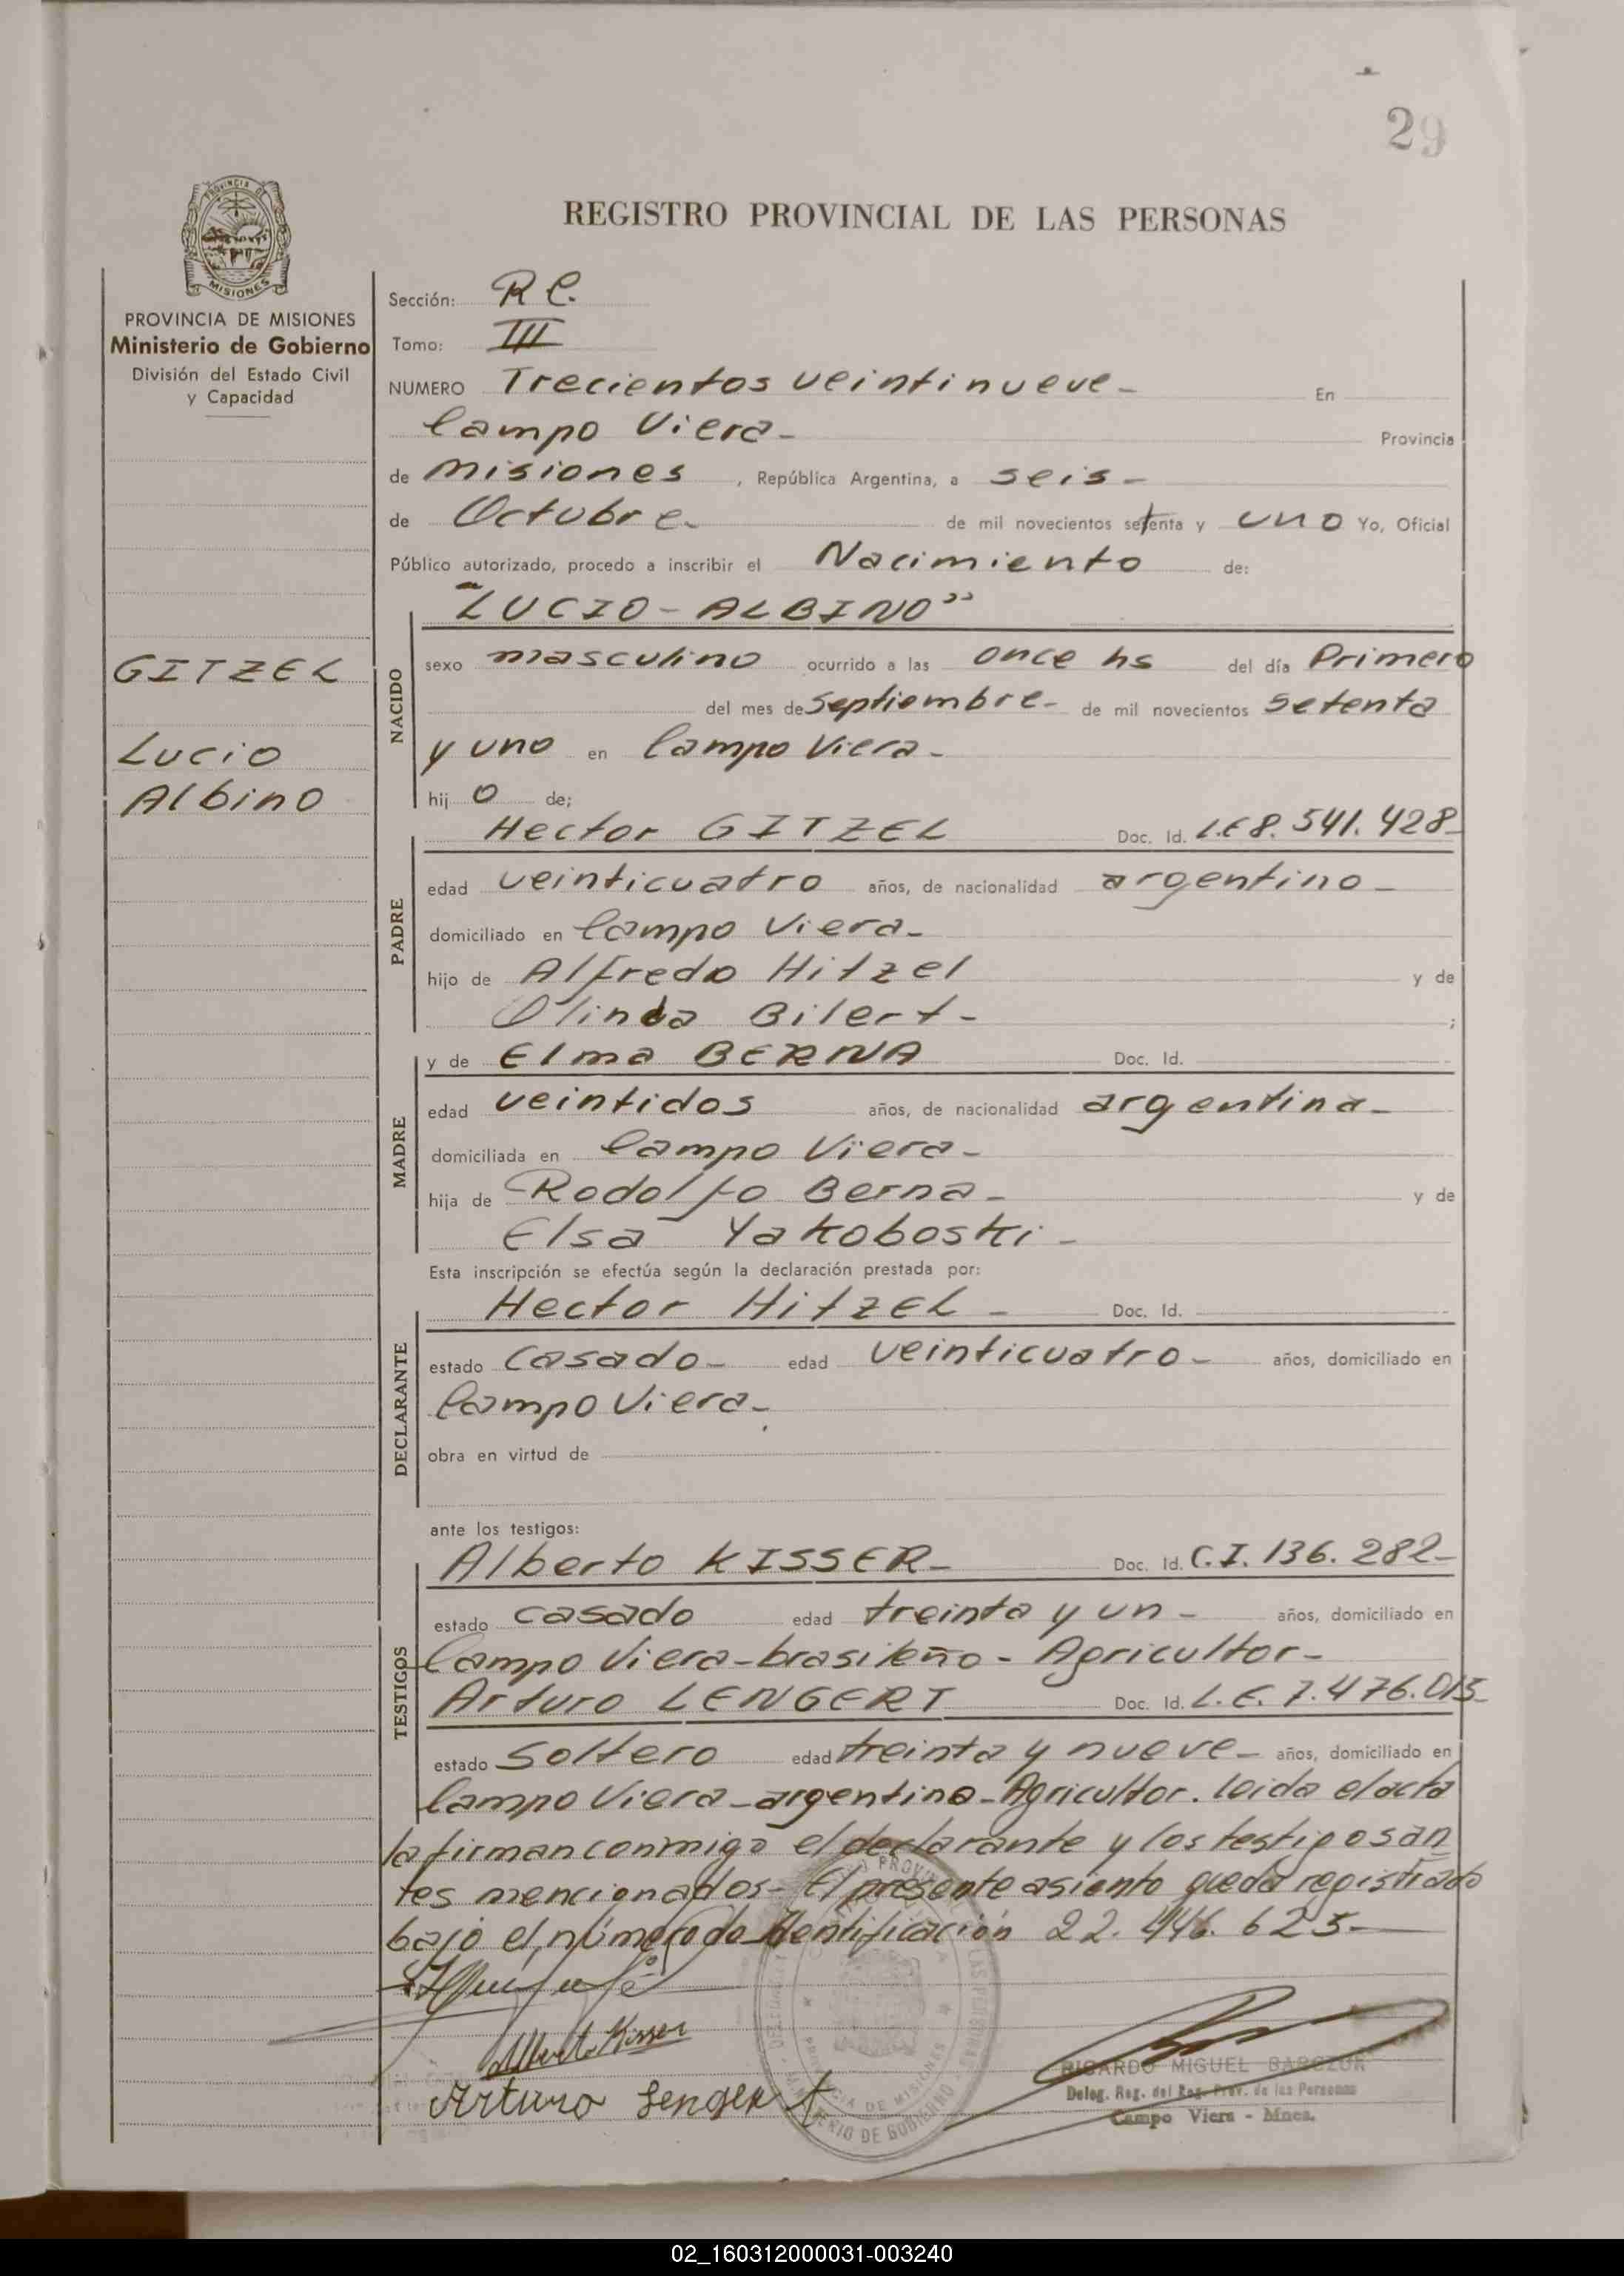 29
REGISTRO PROVINCIAL DE LAS PERSONAS
PROVINCIA DE
MISIONES
PROVINCIA DE MISIONES
Ministerio de Gobierno
División del Estado Civil
y Capacidad
GITZEL
Lucio
Albino
Sección: R C.
Tomo: III
NUMERO Trecientos veintinueve - En
Campo Viera - Provincia
de misiones , República Argentina, a seis -
de Octubre - de mil novecientos setenta y uno Yo, Oficial
Público autorizado, procedo a inscribir el Nacimiento de:
"LUCIO - ALBINO"
NACIDO
sexo masculino ocurrido a las once hs del día Primero
del mes de septiembre - de mil novecientos setenta
y uno en Campo Viera -
hij o de;
Hector GITZEL Doc. Id. L.E 8.541.428-
PADRE
edad veinticuatro años, de nacionalidad argentino -
domiciliado en Campo Viera -
hijo de Alfredo Hitzel y de
Olinda Bilert - ;
y de Elma BERNA Doc. Id.
MADRE
edad veintidos años, de nacionalidad argentina -
domiciliada en Campo Viera -
hija de Rodolfo Berna - y de
Elsa Yakoboski -
Esta inscripción se efectúa según la declaración prestada por:
Hector HitzEL - Doc. Id.
DECLARANTE
estado casado - edad veinticuatro - años, domiciliado en
Campo Viera -
obra en virtud de
ante los testigos:
Alberto KISSER - Doc. Id. C.I. 136.282-
TESTIGOS
estado casado edad treinta y un - años, domiciliado en
Campo Viera - brasileño - Agricultor -
Arturo LENGERT Doc. Id. L.E. 7.476.015-
estado soltero edad treinta y nueve - años, domiciliado en
Campo Viera - argentino - Agricultor. leida el acta
la firman conmigo el declarante y los testigos an
tes mencionados - El presente asiento queda registrado
bajo el número de Identificación 22.446.625 -
Alberto Kisser
Arturo Lengert
RICARDO MIGUEL
Deleg. Reg. del Reg. Prov. de las Personas
Campo Viera - Mnes.
02_160312000031-003240